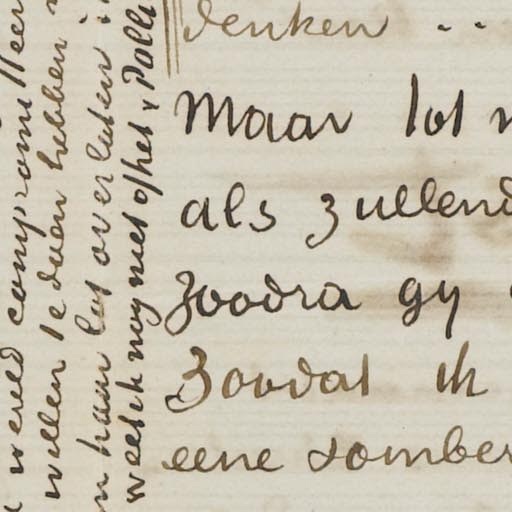 denken ..
Maar tot
als zullend
zoodra gy
Zoodat ik
eene somber
wereld compromitteer
willen te doen hebben
haar lot overlaten
weet ik nog niet of het